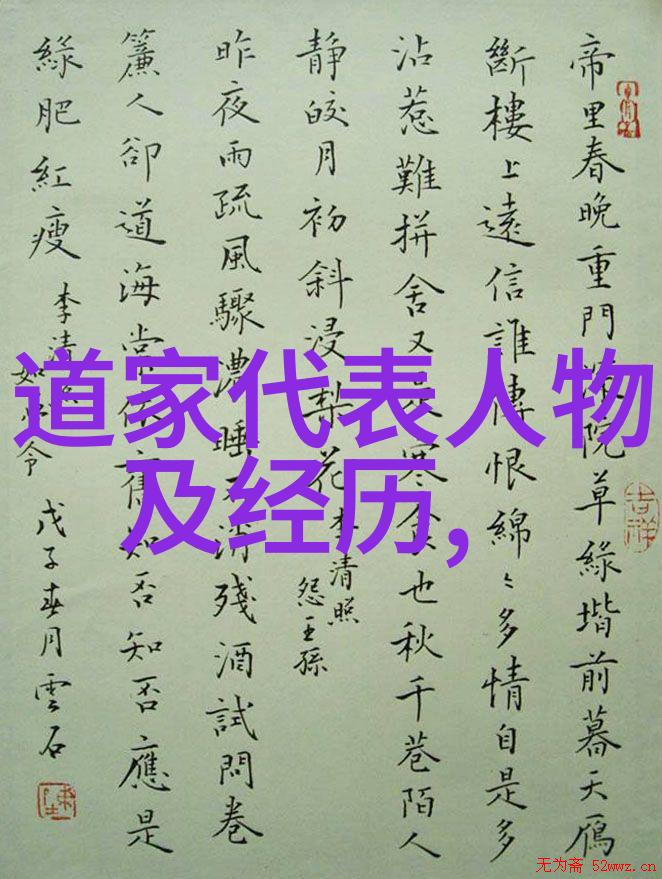 帝里春晚重門深院草緑堦前暮天鴈
斷樓上遠信誰傳恨綿〻多情自是多
沾惹難拼舍又是寒食也秋千巷陌人
静皎月初斜浸梨花
李清照
怨王孫
昨夜雨疏風驟濃睡不消殘酒試問卷
簾人卻道海棠依舊知否知否應是
緑肥紅瘦
李清照
如夢令
戊子春月雲石
吉祥
道家代表人物
及经历,
无为斋 52wwz.cn